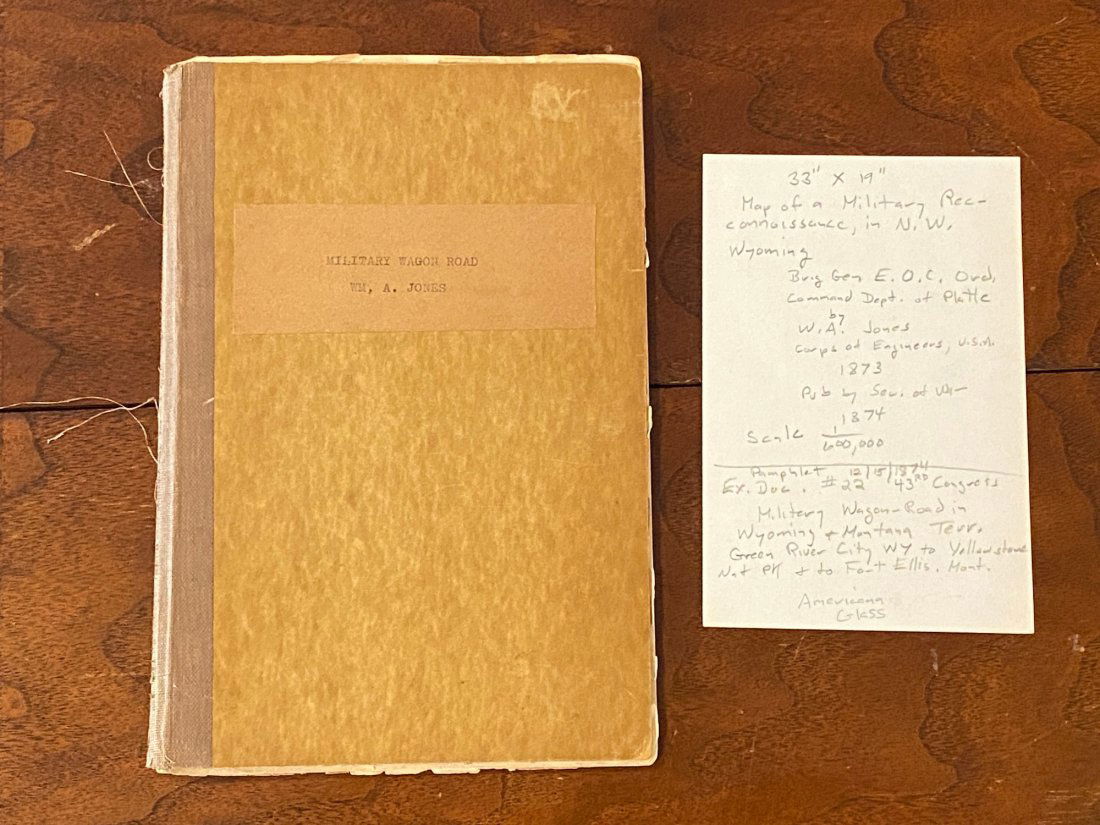 MILITARY WAGON ROAD
WM, A. JONES
33" X 19"
Map of a Military Rec-
connaissance, in N.W.
Wyoming
Brig Gen E.O.C. Ord,
Command Dept. of Platte
by
W.A. Jones
Corps of Engineers, U.S.A.
1873
Pub by Sec. of War
1874
Scale 1/600,000
Pamphlet 12/15/1874
Ex. Doc. #22 43RD Congress
Military Wagon-Road in
Wyoming + Montana Terr.
Green River City WY to Yellowstone
Nat PK + to Fort Ellis, Mont.
Americana
Glass